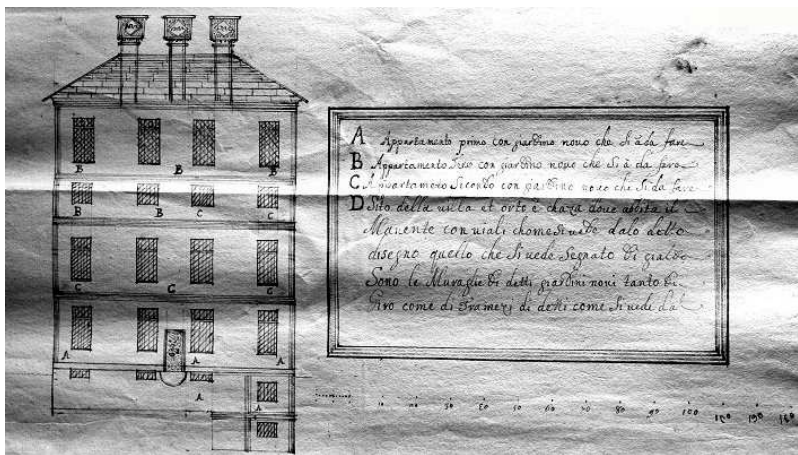 A Appartamento primo con giardino novo che si à da fare
B Appartamento Terzo con giardino novo che si à da fare
C Appartamento Secondo con giardino novo che si da fare
D Sito della villa et orto è chaza dove abita il
Manente con viali chome si vede dalo
disegno quello che si vede Segnato di giallo
Sono le Muraglie di detti giardini novi tanto di
Giro come di Tramezi di detti come si vede dal
B B B
B B C C
C C C
A A A
A A
10 50 60 70 80 90 100